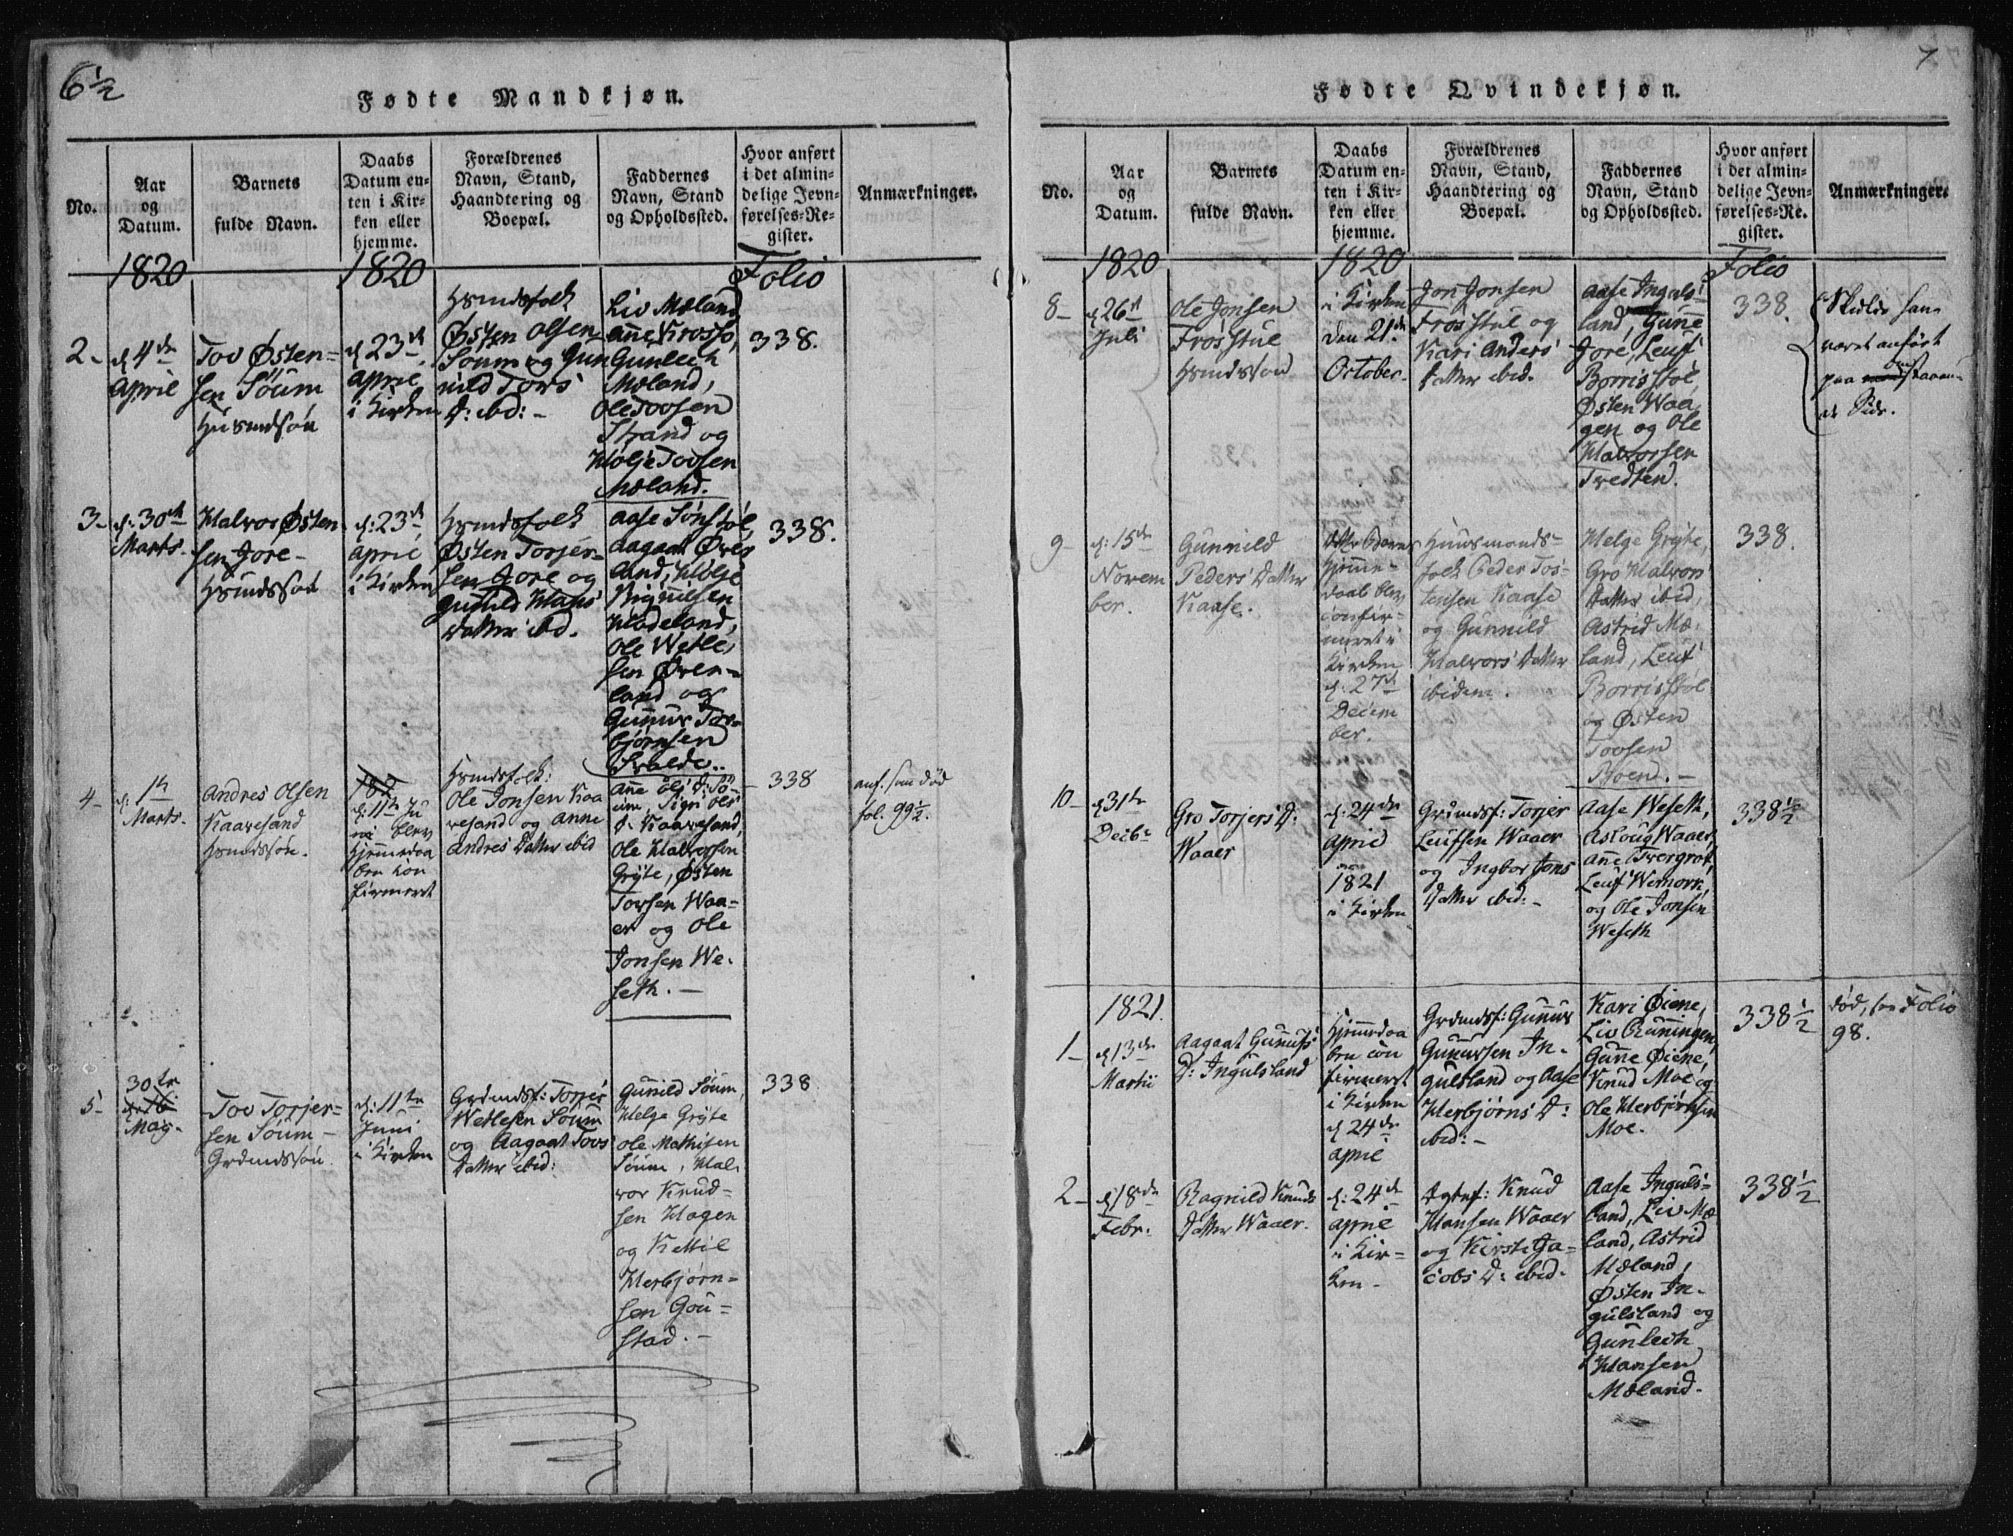 6½
Fødte Mandkjøn.
No.
Aar
og
Datum.
Barnets
fulde Navn.
Daabs
Datum en-
ten i Kir-
ken eller
hjemme.
Forældrenes
Navn, Stand,
Haandtering og
Boepæl.
Faddernes
Navn, Stand
og Opholdssted.
Hvor anført
i det almin-
delige Jevn-
førelses-Re-
gister.
Anmærkninger.
1820
1820
Folio
2-
d. 4de
April
Tov Østen-
sen Søum
Husmdssøn
d. 23d
April
i Kirken
Hsmdsfolk
Østen Olsen
Søum og Gun
nild Tovs
D: ibd: -
Liv Mæland
Anne Krosso,
Gunlech
Mæland,
Ole Tovsen
Strand og
Holje Tovsen
Mæland.
338.
3-
d. 30th
Marts.
Halvor Østen
sen Jore-
Hsmdssøn
d. 23d
April
i Kirken
Hsmdsfolk
Østen Torjer-
sen Jore og
Gunild Hans
Datter ibd.
Aase Sønstøl,
Aagaat Øver
land, Holje
Hødeland,
Ole Wetle-
sen Øver-
land og
Gunnus Tor-
bjørnsen
338.
4-
d. 1th
Marts.
Andres Olsen
Kaavesand
Hsmdssøn.
d. 11th Ju
ni blev
Hjemmedaa
ben con
firmeret
Hsmdsfolk:
Ole Jonsen Kaa
vesand og Anne
Andres Datter ibid
Ane Ols D: Sö-
um, Sigri Ols
D. Kaavesand,
Ole Halvorsen
Grÿte, Østen
Torsen Waa-
er og Ole
Jonsen We-
seth. -
338
anf. som død
fol. 99½.
5-
30te
May.
Tov Torjer-
sen Søum-
Grdmdssøn
d. 11te
Juni
i Kirken
Grdmdsf: Torjer
Wetlesen Søum
og Aagaat Tovs
Datter ibid:
Gunild Søum,
Helge Grÿte
Ole Mathisen
Søum, Hal-
vor Knud-
sen Hagen
og Kettil
Herbjørn-
sen Gou-
stad. -
338
7
Fødte Qvindekjøn.
No.
Aar
og
Datum.
Barnets
fulde Navn.
Daabs
Datum en-
ten i Kir-
ken eller
hjemme.
Forældrenes
Navn, Stand,
Haandtering og
Boepæl.
Faddernes
Navn, Stand
og Opholdssted.
Hvor anført
i det almin-
delige Jevn-
førelses-Re-
gister.
Anmærkninger.
1820
1820
Folio
8-
d. 26d
Juli
Ole Jonsen
Frøsstul
Hsmdssøn
i Kirken
den 21de
October.
Jon Jonsen
Frøsstul og
Kari Anders
Datter ibid.
Aase Inguls-
land, Gunne
Jore, Leuf
Borrisstøl,
Østen Waa
gen og Ole
Halvorsen
Tvedten.
338.
Skulde han
været anført
paa
Side.
9-
d. 15de
Novem
ber.
Gunnild
Peders Datter
Kaase.
Hjemme-
daab blev
confir-
meret i
Kirken
d. 27d
Decem
ber.
Huusmands-
folk Peder Tos-
tensen Kaase
og Gunnild
Halvors Datter
ibidem.
Helge Grÿte,
Gro Halvors
Datter ibid,
Astrid Mæ-
land, Leuf
Borrisstøl
og Østen
Tovsen
Boen. -
338.
10-
d. 31te
Decbr
Gro Torjers D:
Waaer
d. 24de
April
1821
i Kirken
Grdmdsf: Torjer
Leufsen Waaer
og Ingbor Jons
Datter ibid: -
Aase Weseth,
Asloug Waaer,
Anne Tvergrot,
Leuf Wemork,
og Ole Jonsen
Weseth
338½
1821.
1-
d. 13de
Martii
Aagaat Gunufs
D: Ingulsland
Hjemmedaa
ben con
firmeret
i Kirken
d. 24de
April
Grdmdsf: Gunus
Gunussen In-
gulsland og Aase
Herbjørns D:
ibid: -
Kari Øiene,
Liv Rünningen,
Gunne Øiene,
Knud Moe og
Ole Herbjørnsen
Moe.
338½
død, see Folio
98.
2-
d. 18de
Febr.
Ragnild Knuds
Datter Waaer.
d. 24de
April
i Kir-
ken-
Knud
Hansen Waaer
og Kirsti Ja-
cobs D: ibid.
Aase Inguls-
land, Liv Mæ
land, Astrid
Mæland,
Østen In-
gulsland og
Gunlech
Hansen
Mæland.
338½